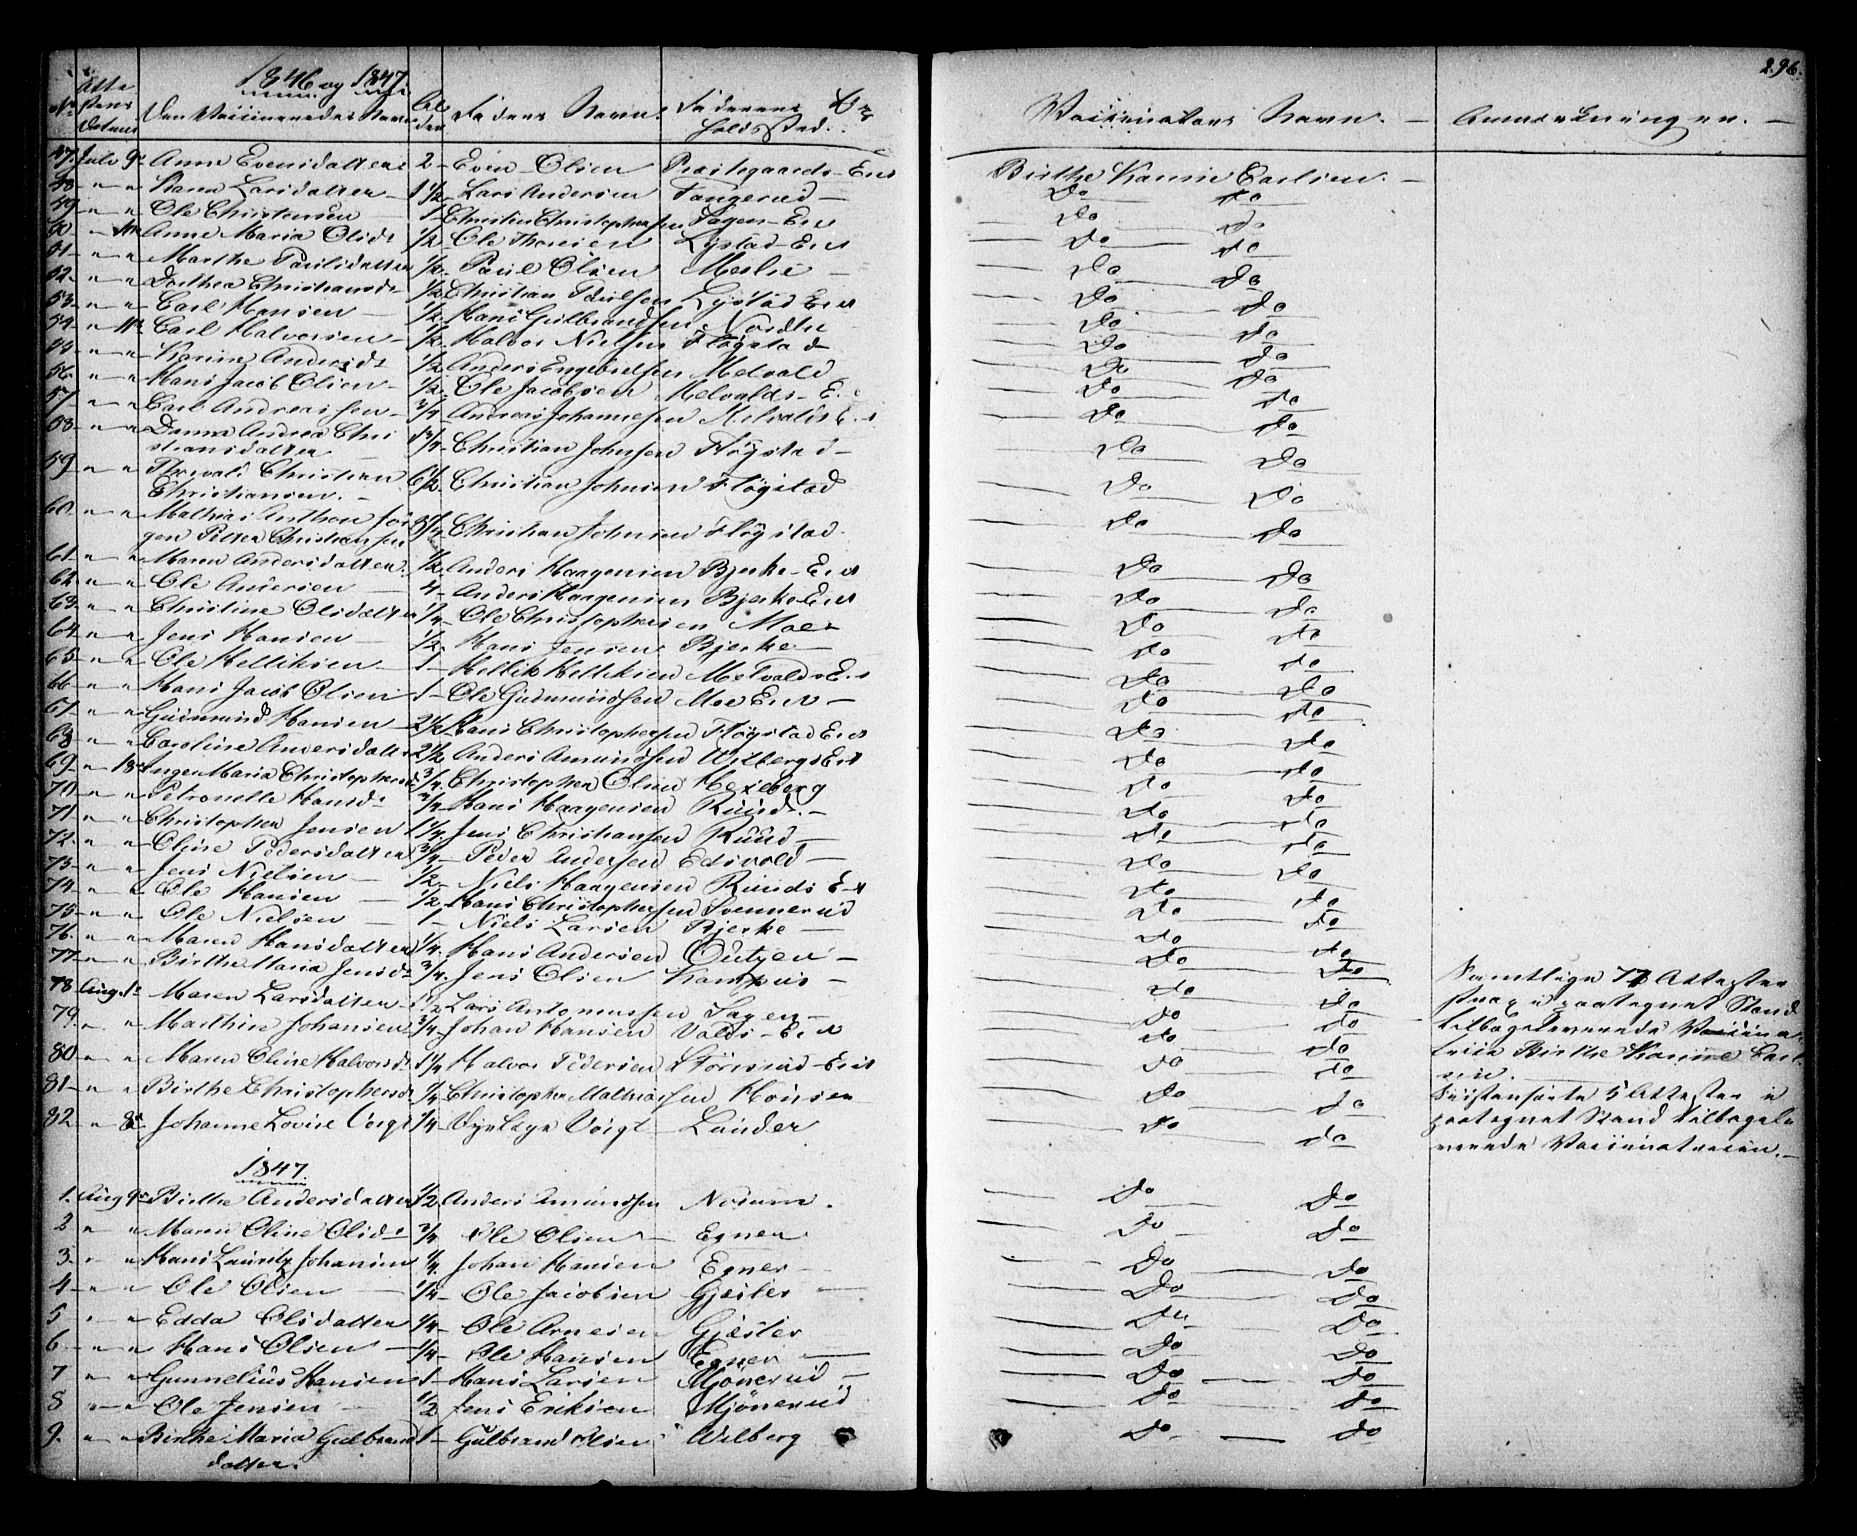 296.
1846 og 1847.
No Attestens Datum Den Vaccineredes Navn Alder Faderens Navn. Faderens Opholdssted. Vaccinatens Navn. Anmærkninger.
47. Julii 9de Anne Evensdatter 2 Even Olsen Præstegaards-Eiet Birthe Karine Carlsen.
48 " " Karen Larsdatter 1 1/2 Lars Andersen Tangerud Do Do
49 " " Ole Christensen 1 Christen Christophersen Fagen-Eiet Do Do
50 " " Anne Maria Olsdt 1/2 Ole Thoresen Lystad-Eiet Do Do
51 " " Marthe Paulsdatter 1/2 Paul Olsen Meslie Do Do
52 " " Dorthea Christiansdt 1/2 Christian Paulsen Lystad Eiet Do Do
53 " " Carl Hansen 1/2 Hans Gulbrandsen Nordlie Do Do
54 " 11te Carl Halvorsen 1/2 Halvor Nielsen Fløgstad Do Do
55 " " Karine Andersdt 1/2 Anders Engebretsen Melvold Do Do
56 " " Hans Jacob Olsen 1/2 Ole Jacobsen Melvolds-E. Do Do
57 " " Carl Andreassen 3/4 Andreas Johannesen Melvolds E. Do Do
58 " " Andrea Christiansdatter Christian Johnsen Fløgstad Do Do
59 " " Thorvald Christian Christiansen. 6 1/2 Christian Johnsen Fløgstad Do Do
60 " " Mathias Anthon Jørgen Petter Christiansen Christian Johnsen Fløgstad. Do Do
61 " " Maren Andersdatter 1/2 Anders Haagensen Bjerke-Eiet Do Do
62 " " Ole Andersen 4 Anders Haagensen Bjerke Eiet Do Do
63 " " Christine Olsdatter 1/4 Ole Christophersen Moe Do Do
64 " " Jens Hansen 1/2 Hans Jensen Bjerke Do Do
65 " " Ole Helliksen 1 Hellik Helliksen Melvolds E. Do Do
66 " " Hans Jacob Olsen 1 Ole Gudmundsen Moe Eiet Do Do
67 " " Gudmund Hansen 2 1/2 Hans Christophersen Fløgstad Eiet Do Do
68 " " Caroline Andersdatter 2 1/2 Anders Amundsen Wilbergs Eiet Do Do
69 " 18de Inger Maria Christophersdt 3/4 Christopher Olsen Hexeberg Do Do
70 " " Petronelle Hansdt 3/4 Hans Haagensen Ruud. Do Do
71 " " Christopher Jensen 1 1/4 Jens Christiansen Ruud Do Do
72 " " Oline Pedersdatter 3/4 Peder Andersen Edsvold Do Do
73 " " Jens Nielsen 1/2 Niels Haagensen Ruuds Eiet Do Do
74 " " Ole Hansen 1/2 Hans Christophersen Svennerud Do Do
75 " " Ole Nielsen 1 Niels Larsen Bjerke Do Do
76. " " Maren Hansdatter 1/4 Hans Andersen Outzen Do Do
77 " " Birthe Maria Jensdt 3/4 Jens Olsen Kampus Do Do
78 Aug. 1ste Maren Larsdatter 1/2 Lars Antonussen Fagen Do Do
79. " " Marthine Johansen 3/4 Johan Hansen Volds-Eiet Do Do
80 " " Maren Oline Halvorsdt 1 1/4 Halvor Pedersen Størsrud-Eiet Do Do
81 " " Birthe Christophersdt 1/4 Christopher Mathiasen Honsen Do Do
82 " 8de Johanne Lovise Voigt 1/4 Voigt Lunder Do Do
Samtlige 77 Attester
strax i paategnet Stand
tilbageleverede Vaccina-
tricen Birthe Karine Carl-
sen.
Sidstanførte 5 Attester i
paategnet Stand tilbagele-
verede Vaccinatricen.
1847.
1. Aug 9de Birthe Andersdatter 1/2 Anders Amundsen Nordum. Do Do
2 " " Maren Oline Olsdt 3/4 Ole Olsen Egner Do Do
3 " " Hans Lauritz Johansen 1/4 Johan Hansen Egner Do Do
4 " " Ole Olsen 1/4 Ole Jacobsen Gjester Do Do
5 " " Edda Olsdatter 1/4 Ole Arnesen Gjester Do Do
6 " " Hans Olsen 1/4 Ole Hansen Egner Do Do
7 " " Gunnelius Hansen 1 Hans Larsen Mjønerud Do Do
8 " " Ole Jensen 1/2 Jens Eriksen Mjønerud Do Do
9. " " Birthe Maria Gulbrandsdatter. 1 Gulbrand Olsen Wilberg Do Do